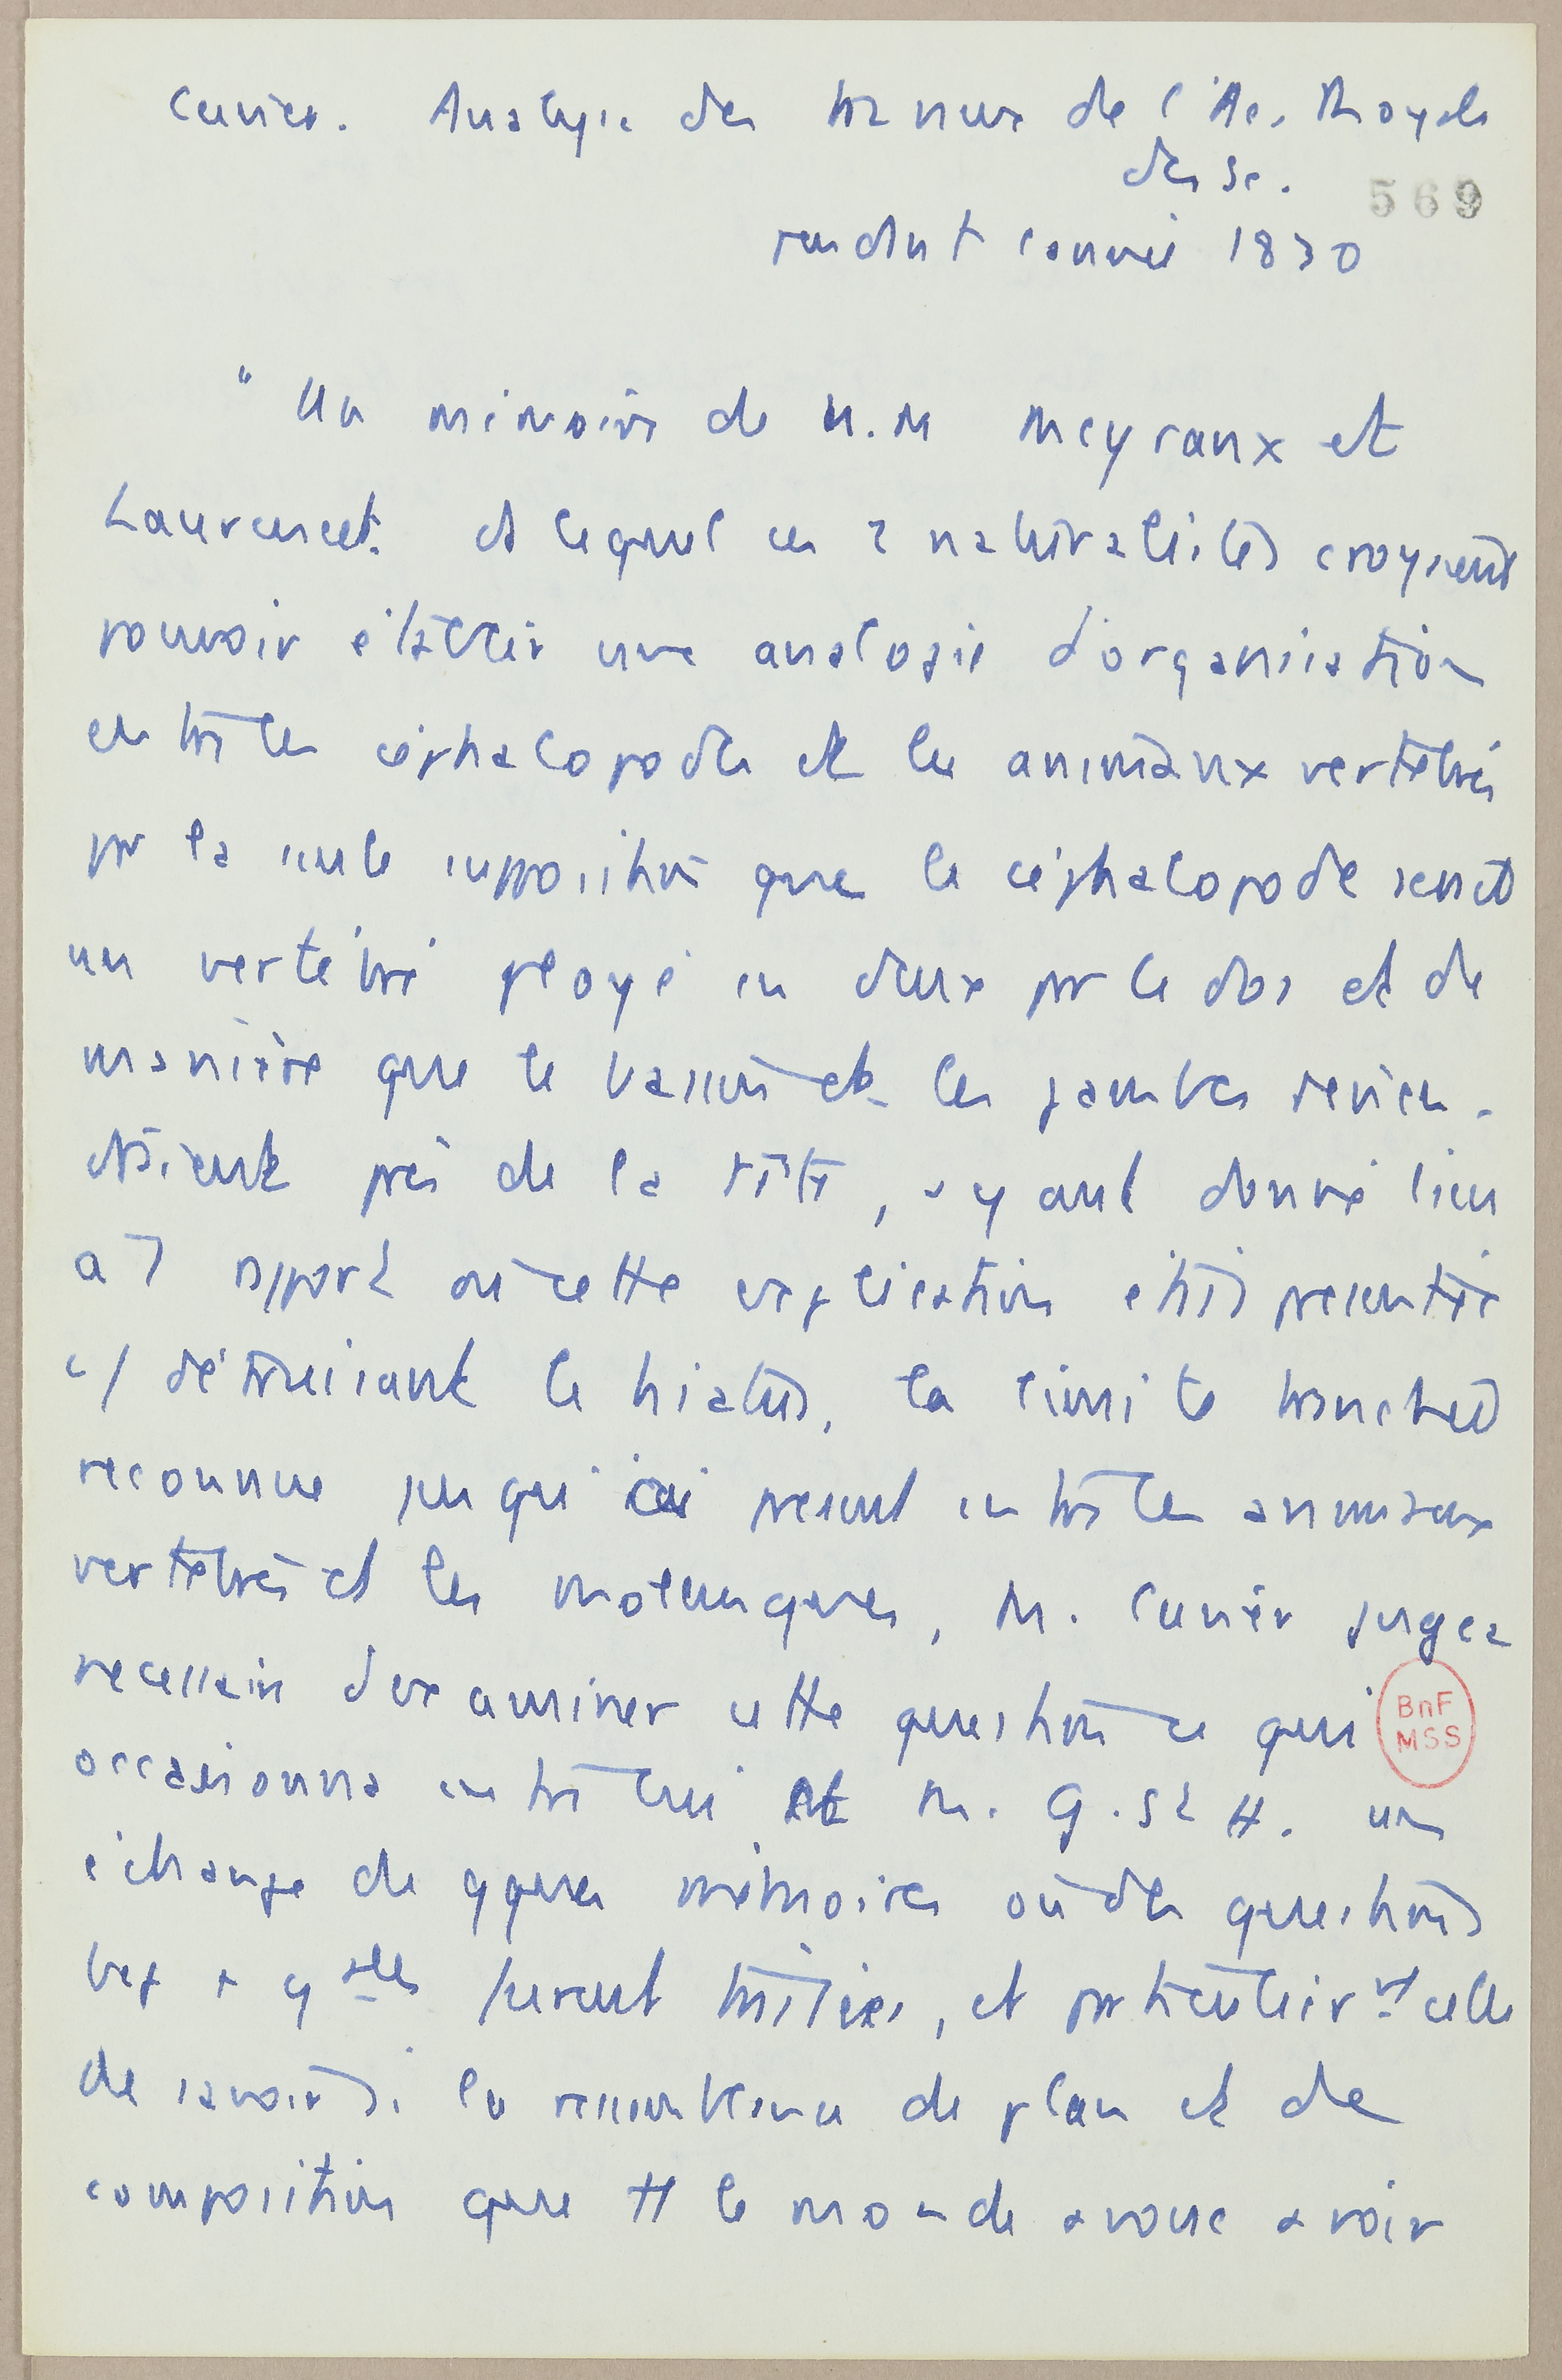 Cuvier. Analyse des travaux de l'Ac. Royale
des Sc.
569
pendant l'année 1830
" Un mémoire de M.M Meyranx et
Laurencet. et lequel ces 2 naturalistes croyaient
pouvoir établir une analogie d'organisation
entre les céphalopodes et les animaux vertébrés
par la seule supposition que le céphalopode serait
un vertébré ployé en deux par le dos et de
manière que le bassin et les jambes revien-
draient près de la tête, ayant donné lieu
à rapport où cette explication était présentée
c/ détruisant le hiatus, la limite tranchée
reconnue jusqu'ici présent entre les animaux
vertébrés et les mollusques, M. Cuvier jugea
nécessaire d'examiner cette question ce qui
BnF
MSS
occasionna entre lui et M. G. St H. un
échange de qques mémoires où des questions
furent traitées, et particulièrt celle
de savoir si la ressemblance de plan et de
composition que tt le monde avoue avoir